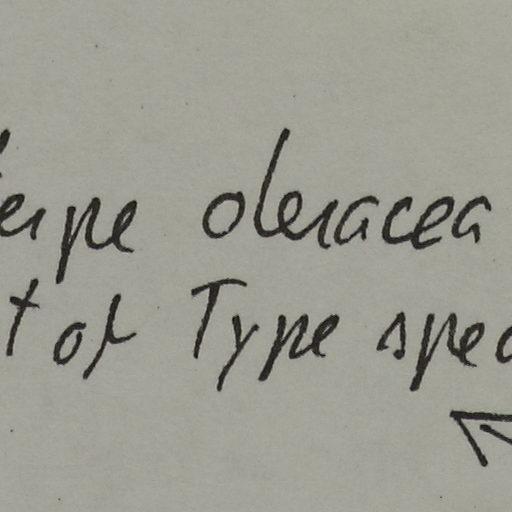 terpe oleracea
t of Type spec